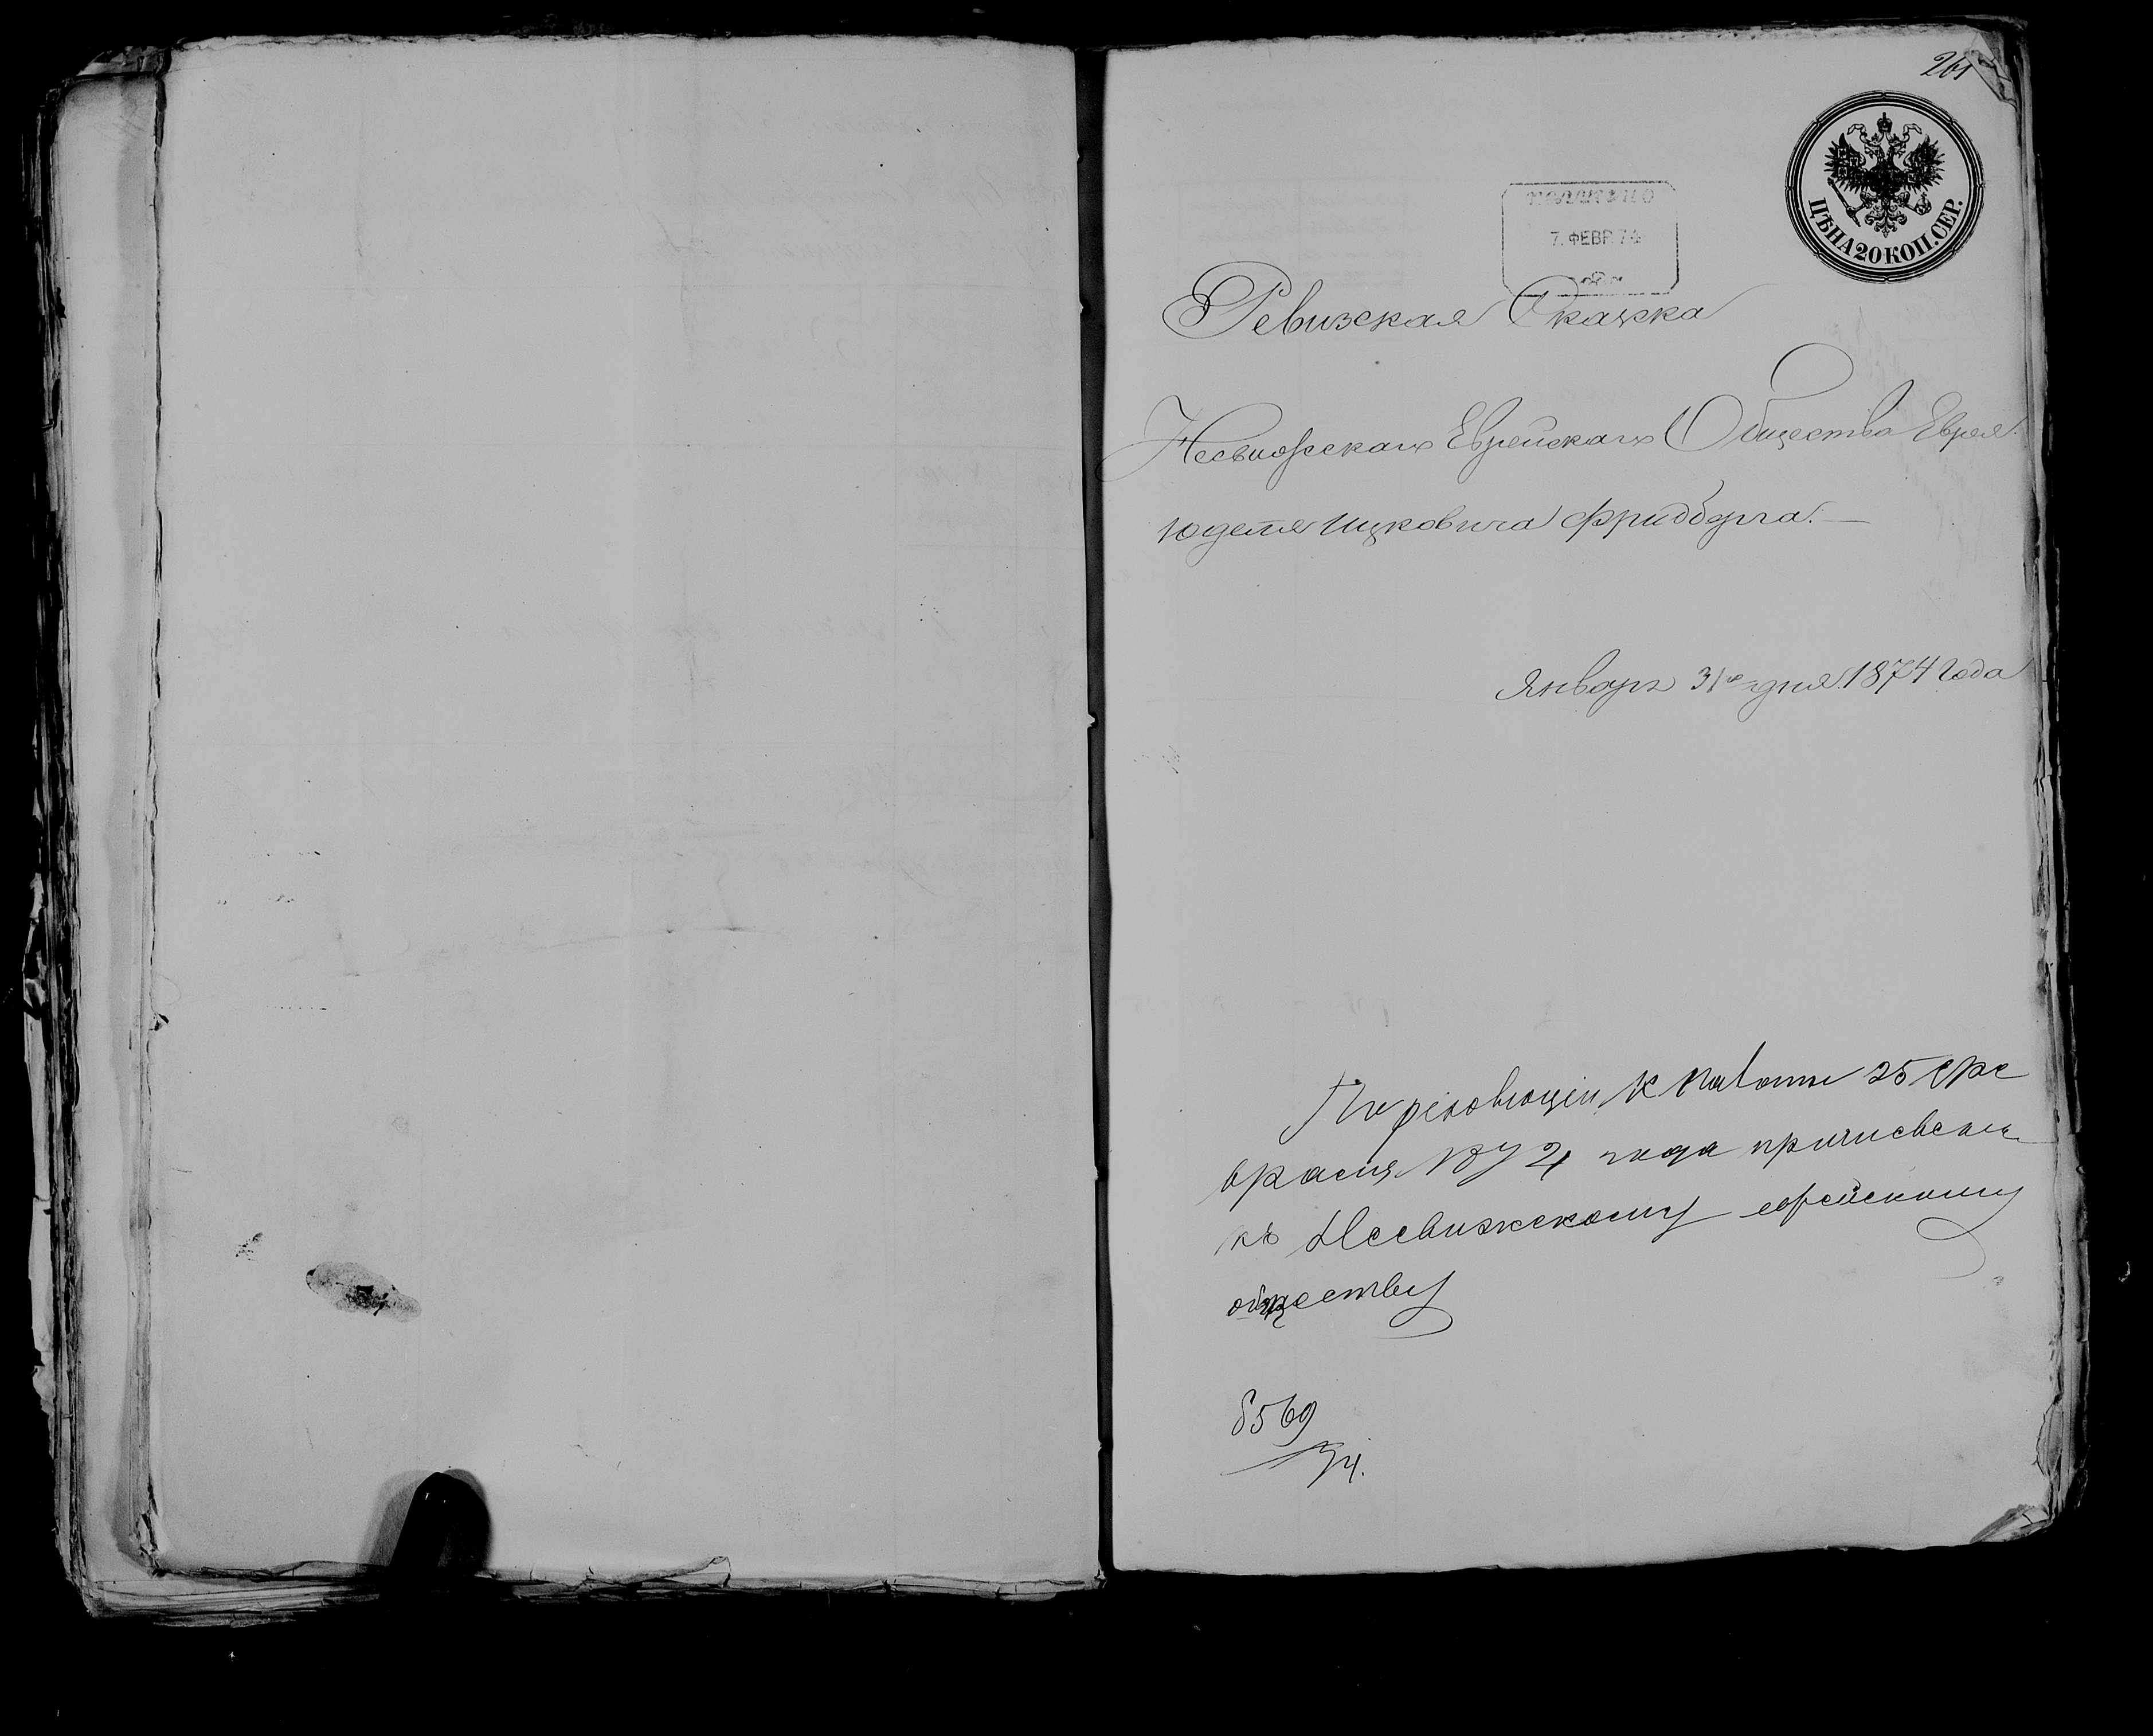 261
ЦѢНА 20 КОП. СЕР.
7. ФЕВР. 74
Ревизская Сказка
Несвижскаго Еврейскаго Общества Еврея
Юделя Ицковича Фридберга.
Январь 31го дня 1874 года
По резолюціи К Палаты 25 Фе
враля 1874 года причислены
къ Несвижскому еврейскому
обществу
8569
74.